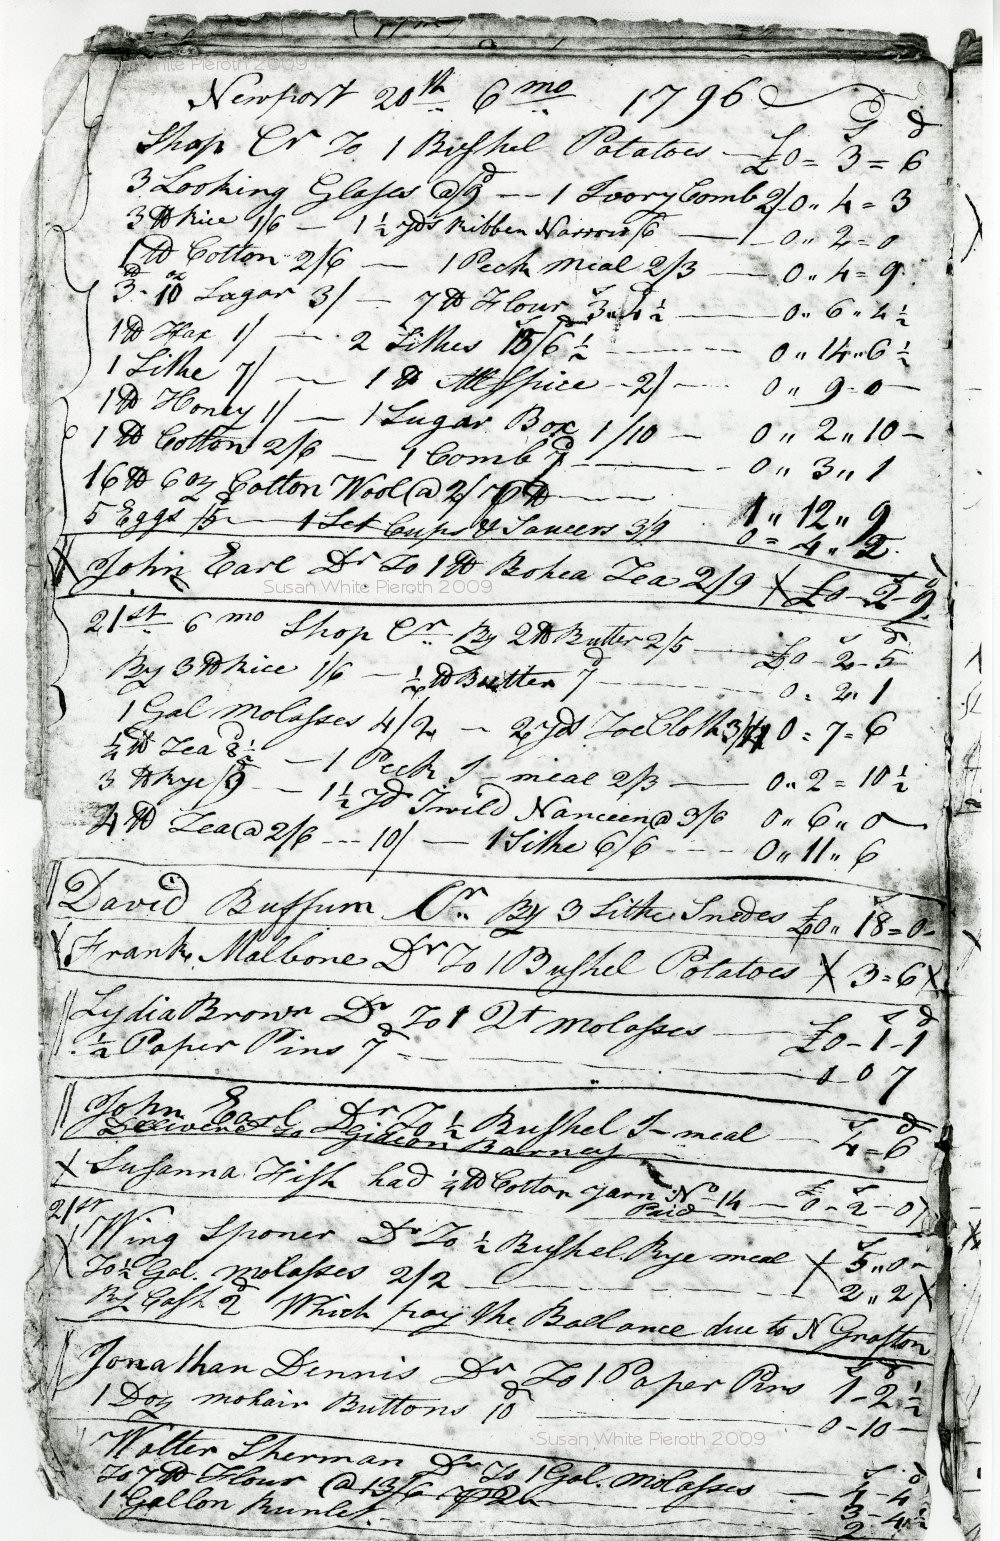 Susan White Pieroth 2009
Newport 20th 6 mo 1796
S d
Shop Cr To 1 Bushel Potatoes £0 = 3 = 6
3 Looking Glases @ /9d -- 1 Ivory Comb 2/ 0 " 4 = 3
3 lb Rice 1/6 — 1 1/2 yds Ribben Narrow /6 — 0 " 2 = 0
1 lb Cotton 2/6 — 1 Peck meal 2/3 — 0 " 4 = 9
3 lb - 10 oz Sugar 3/ — 7 lb Flour 3 " 4 1/2 — 0 " 6 " 4 1/2
1 lb Flax 1/ — 2 Sithes 13/6 1/2 — 0 " 14 " 6 1/2
1 Sithe 7/ — 1 lb Allspice -- 2/ — 0 " 9 - 0 —
1 lb Honey 1/ — 1 Sugar Box 1/10 — 0 " 2 " 10 —
1 lb Cotton 2/6 — 1 Comb 7d — 0 " 3 " 1
16 lb 6 oz Cotton Wool @ 2/ lb — 1 " 12 " 9
5 Eggs /5 — 1 Set Cups & Saucers 3/9 0 = 4 " 2
X John Earl Dr To 1 lb Bohea Tea 2/9 X £0 - 2 - 9
Susan White Pieroth 2009
21st 6 mo Shop Cr By 2 lb Butter 2/5 — £0 - 2 - 5
By 3 lb Rice 1/6 — 1/2 lb Butter 7d — 0 = 2 " 1
1 Gal Molasses 4/2 — 2 yds Toe Cloth 3/4 0 = 7 = 6
1/4 lb Tea 8 1/2d — 1 Peck I - meal 2/3 — 0 " 2 = 10 1/2
3 lb Rye /9 -- 1 1/2 yd Twild Nanceen @ 3/6 0 " 6 " 0
4 lb Tea @ 2/6 --- 10/ — 1 Sithe 6/6 --- 0 " 11 " 6
David Buffum Cr By 3 Sithe Snedes £0 " 18 = 0 -
X Frank Malbone Dr To 1 Bushel Potatoes X 3 = 6 X
Lydia Brown Dr To 1 Qt Molasses — £0 - 1 - 1
1/2 Paper Pins 7d — 0 - 0 7
John Earl Dr To 1/2 Bushel I - meal — 4 = 6
Delivered to Gideon Barney
X Susanna Fish had 1/4 lb Cotton yarn No 14 — £0 - 2 - 0
Paid
21st
Wing Sponer Dr To 1/2 Bushel Rye meal X 5 " 0 -
To 1/2 Gal. Molasses 2/2 — 2 " 2 X
By Cash 2d Which pay the Ballance due to N Grafton
Jonathan Dennis Dr To 1 Paper Pins 1 - 2 1/2
1 Doz mohair Buttons 10d — 0 - 10 —
Susan White Pieroth 2009
Walter Sherman Dr To 1 Gal. Molasses — 4 - 4
To 7 lb Flour @ — 3 - 4 1/2
1 Gallon Runlet — 2